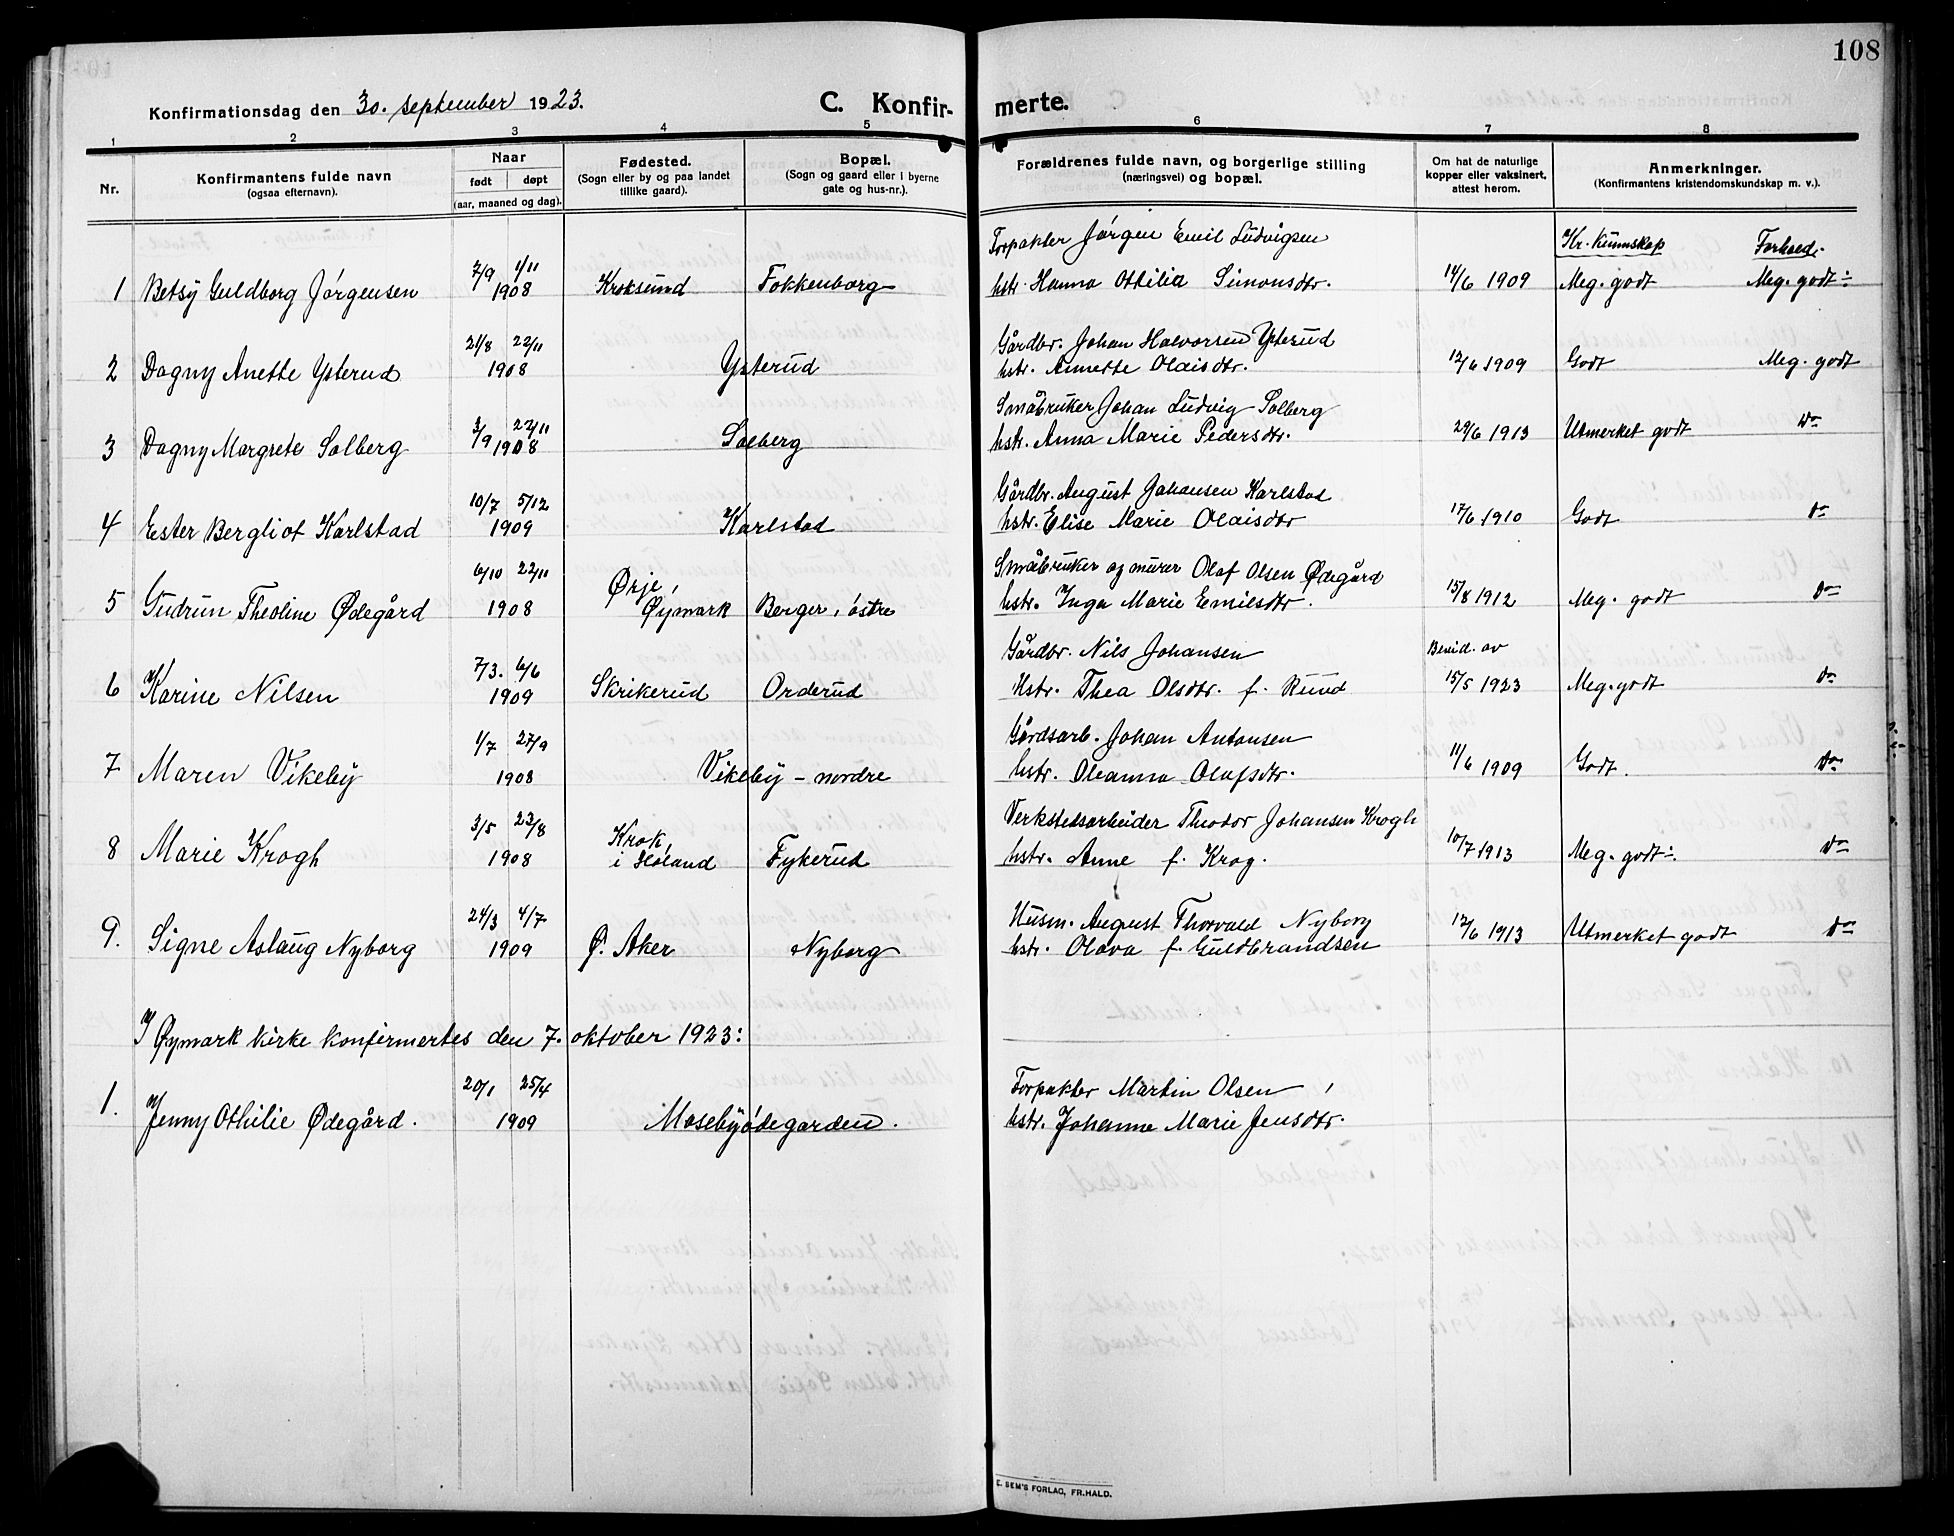 108
Konfirmationsdag den 30. september 1923.
C. Konfir- merte.
1 2 3 4 5 6 7 8
Nr.
Konfirmantens fulde navn
(ogsaa efternavn).
Naar
født døpt
(aar, maaned og dag).
Fødested.
(Sogn eller by og paa landet
tillike gaard).
Bopæl.
(Sogn og gaard eller i byerne
gate og hus-nr.).
Forældrenes fulde navn, og borgerlige stilling
(næringsvei) og bopæl.
Om hat de naturlige
kopper eller vaksinert,
attest herom.
Anmerkninger.
(Konfirmantens kristendomskundskap m. v.).
Kr. kunnskap Forhold:
Forpakter Jørgen Emil Ludvigsen
7/9 1/11
1 Betsy Guldborg Jørgensen 1908 Kroksund Fokkenborg hstr. Hanna Ottilia Simonsdtr. 14/6 1909 Meg. godt Meg. godt
21/8 22/11 Gårdbr. Johan Halvorsen Ysterud
2 Dagny Anette Ysterud 1908 Ysterud hstr. Annette Olaisdtr. 12/6 1909 Godt Meg. godt
3/9 22/11 Småbruker Johan Ludvig Solberg
3 Dagny Margrete Solberg 1908 Solberg hstr. Anna Marie Pedersdtr. 29/6 1913 Utmerket godt Do
10/7 5/12 Gårdbr. August Johansen Karlstad
4 Ester Bergliot Karlstad 1909 Karlstad hstr. Elise Marie Olaisdtr 17/6 1910 Godt Do
6/10 22/11 Ørje, Småbruker og murer Olaf Olsen Ødegård
5 Gudrun Theoline Ødegård 1908 Øymark Berger, østre hstr. Inga Marie Emilsdtr. 15/8 1912 Meg. godt Do
7/3. 6/6 Gårdbr. Nils Johansen Bevid. av
6 Karine Nilsen 1909 Skrikerud Orderud Hstr. Thea Olsdtr. f. Ruud 15/5 1923 Meg. godt Do
1/7 27/9 Gårdsarb. Johan Antonsen
7 Maren Vikeby 1908 Vikeby - nordre hstr. Oleanna Olafsdtr. 11/6 1909 Godt. Do
3/5 23/8 Krok, Verkstedsarbeider Theodor Johansen Krogh
8 Marie Krogh 1908 i Høland Fykerud hstr. Anne f. Krog. 10/7 1913 Meg. godt Do
24/3 4/7 Husm. August Thorvald Nyborg
9. Signe Aslaug Nyborg 1909 Ø. Aker Nyborg hstr. Olava f. Guldbrandsen 12/6 1913 Utmerket godt Do
I Øymark kirke konfirmertes den 7. oktober 1923:
20/1 25/4 Forpakter Martin Olsen,
1. Jenny Othilie Ødegård. 1909 Mosebyødegården. hstr. Johanne Marie Jensdtr.
E. SEM'S FORLAG, FR.HALD.